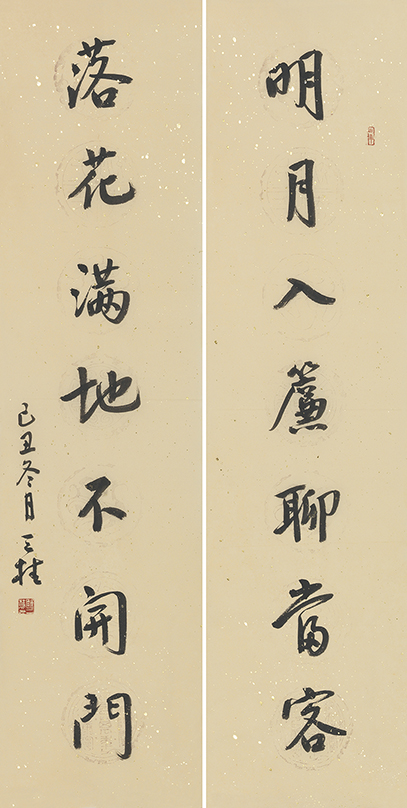 明月入簾聊當客
落花满地不開門
己丑冬月三桂